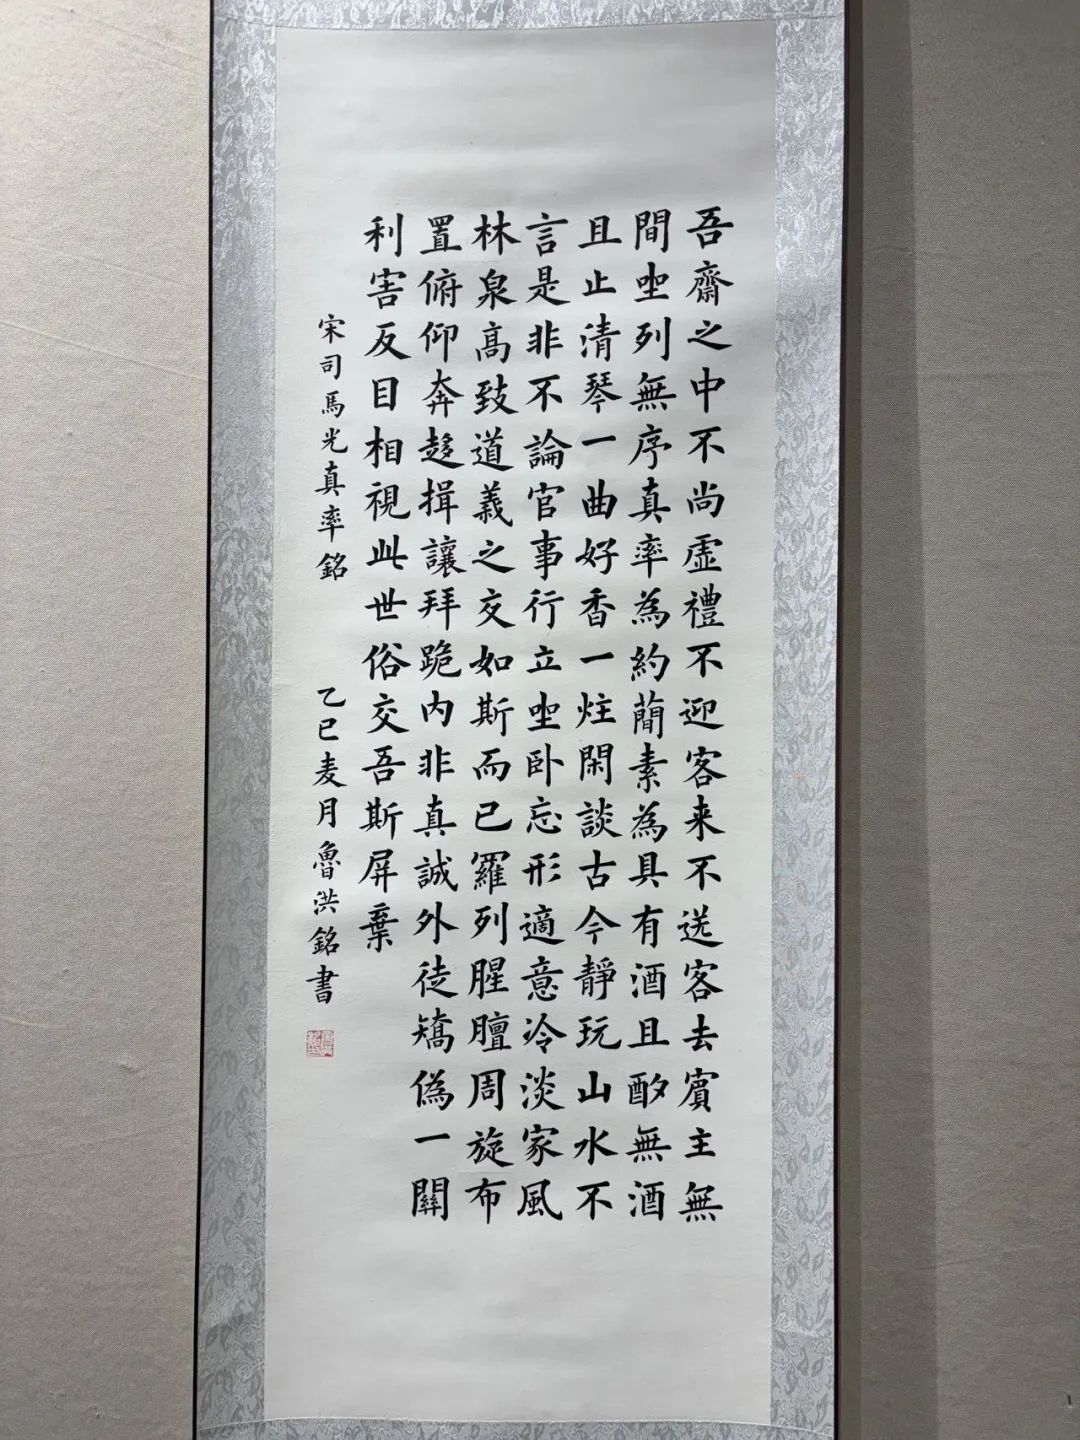 吾齋之中不尚虛禮不迎客来不送客去賓主無
間坐列無序真率為約蕑素為具有酒且酌無酒
且止清琴一曲好香一炷閑談古今靜玩山水不
言是非不論官事行立坐卧忘形適意冷淡家風
林泉髙致道義之交如斯而已羅列腥膻周旋布
置俯仰奔趍揖讓拜跪内非真誠外徒矯偽一關
利害反目相視此世俗交吾斯屏棄
宋司馬光真率銘
乙巳麦月魯洪銘書